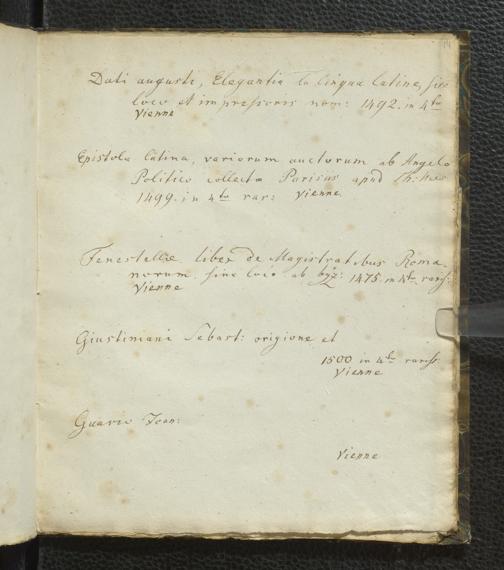 Dati augusti, Elegantia La lingua latina, sine
loco et impressoris nom: 1492. in 4to
Vienne
Epistola latina, variorum auctorum ab Angelo
Politico collecta Parisus apud
1499. in 4to rar: Vienne
Fenestellæ liber de Magistratibus Roma
norum sine loco ab 1475. in 4to rariss:
Vienne
Giustiniani Sebast: origione et
1500 in 4to rariss:
Vienne
Guario Joan:
Vienne